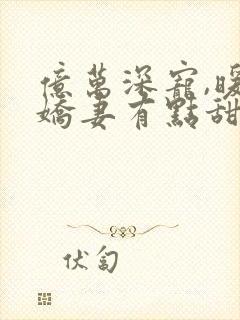 億萬深寵,暖
嬌妻有點甜
伏匐